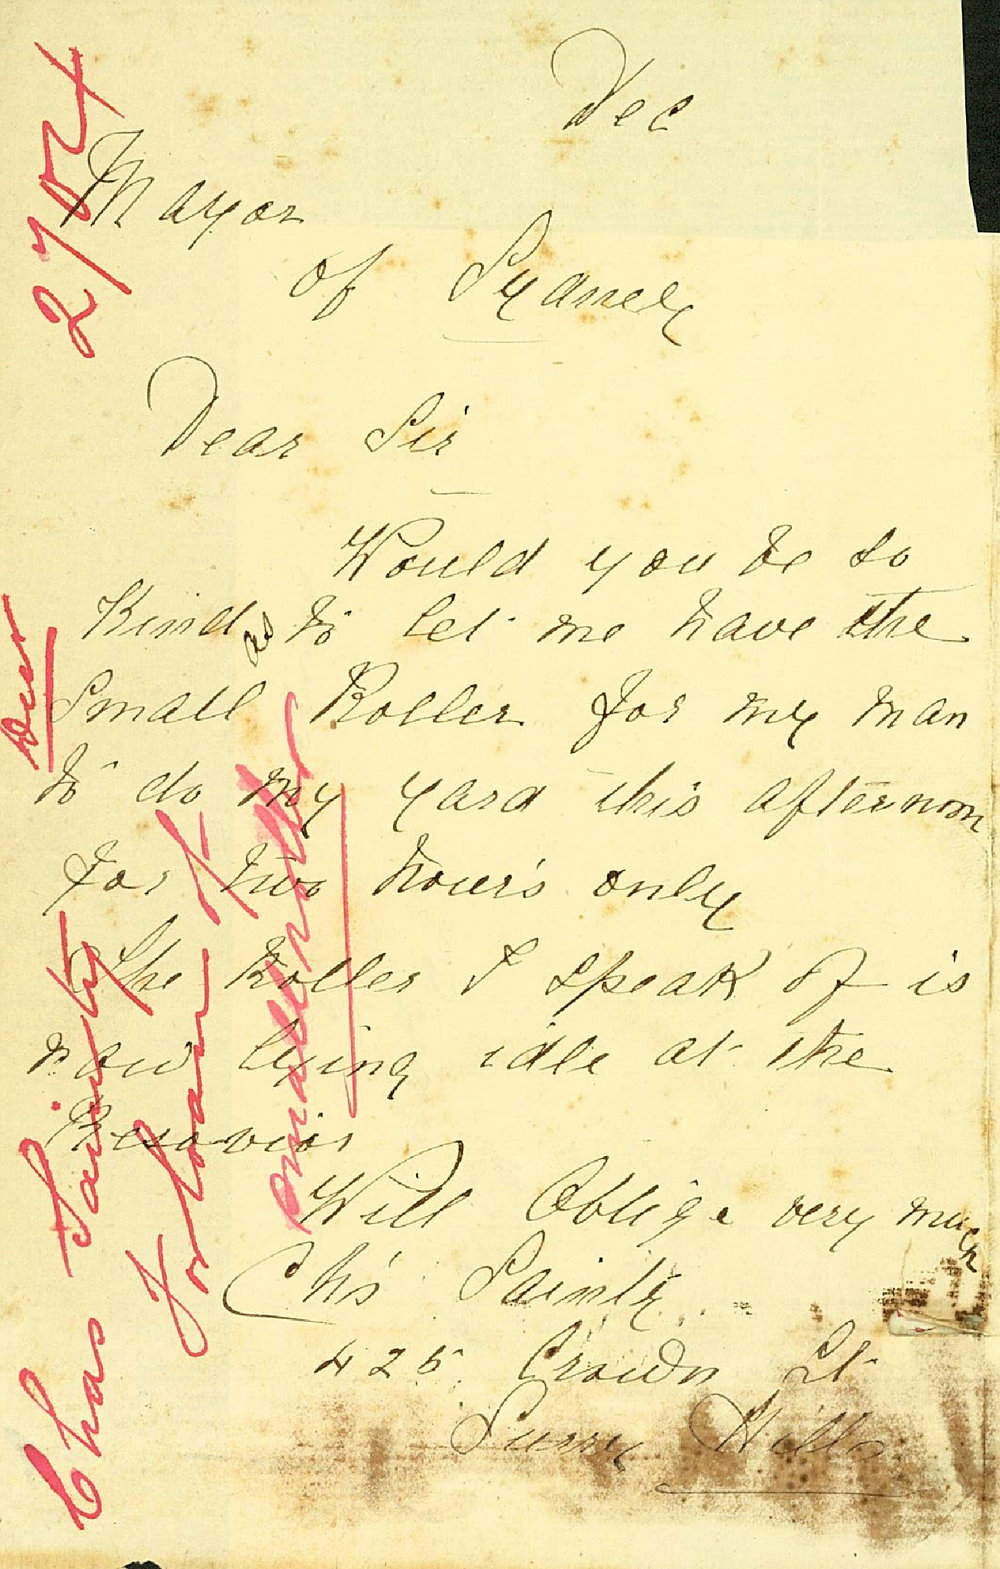 Dec
Mayor
of Sydney
Dear Sir
Would you be so
Kind as to let me have the
Small Roller for my man
to do my yard this afternoon
for two hours only
The Roller I speak of is
now lying idle at the
Resavior
Will Oblige very much
Chs Sainty
425 Crown St
Surry Hills
2704
Chas Sainty
for loan of
small roller